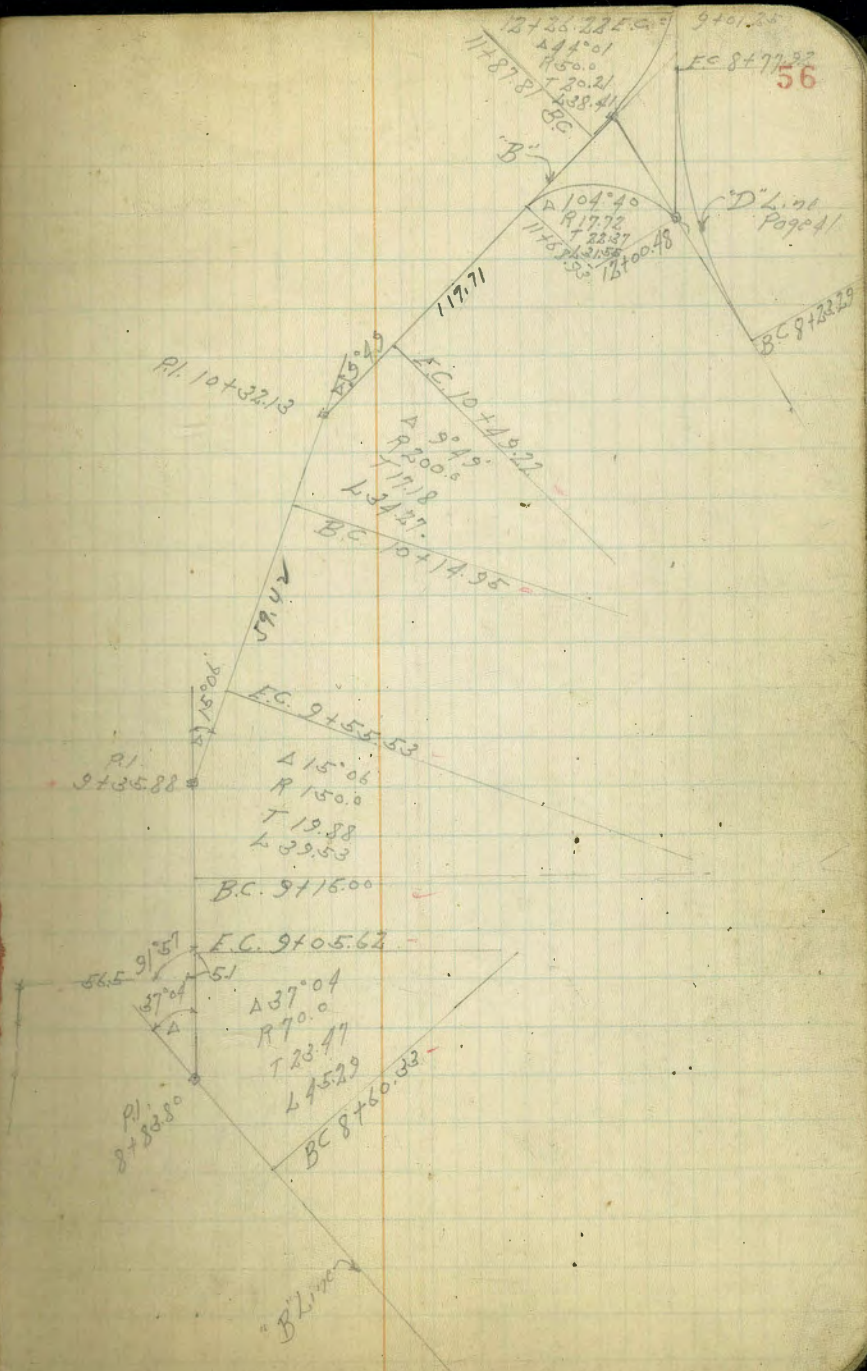 12+26.22 E.C. =
9+01.25
Δ 44°01
R 50.0
T 20.21
L 38.41
11+87.81 B.C.
E.C. 8+77.92
56
"B"
Δ 104°40
R 17.72
T 22.37
11+68.93
12+00.48
"D" Line
Page 41
B.C. 8+23.29
117.71
P.I. 10+32.13
E.C. 10+49.22
Δ 9°49'
R 200.0
T 17.18
L 34.27
B.C. 10+14.95
59.42
Δ 15°06'
E.C. 9+55.53
P.I.
9+35.88
Δ 15°06
R 150.0
T 19.88
L 39.53
B.C. 9+16.00
E.C. 9+05.62
91°57
56.5
51
37°04
Δ
Δ 37°04
R 70.0
T 23.47
L 45.29
P.I.
8+83.80
BC 8+60.33
"B" Line